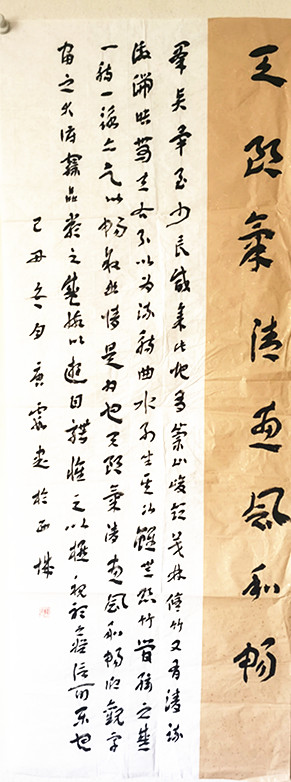 天朗氣清惠風和暢
羣賢畢至少長咸集此地有崇山峻領茂林修竹又有清流
激湍映帶左右引以為流觴曲水列坐其次雖無絲竹管弦之盛
一觴一詠亦足以暢敘幽情是日也天朗氣清惠風和暢仰觀宇
宙之大俯察品類之盛所以遊目騁懷足以極視聽之娛信可樂也
己丑冬月庚書於城